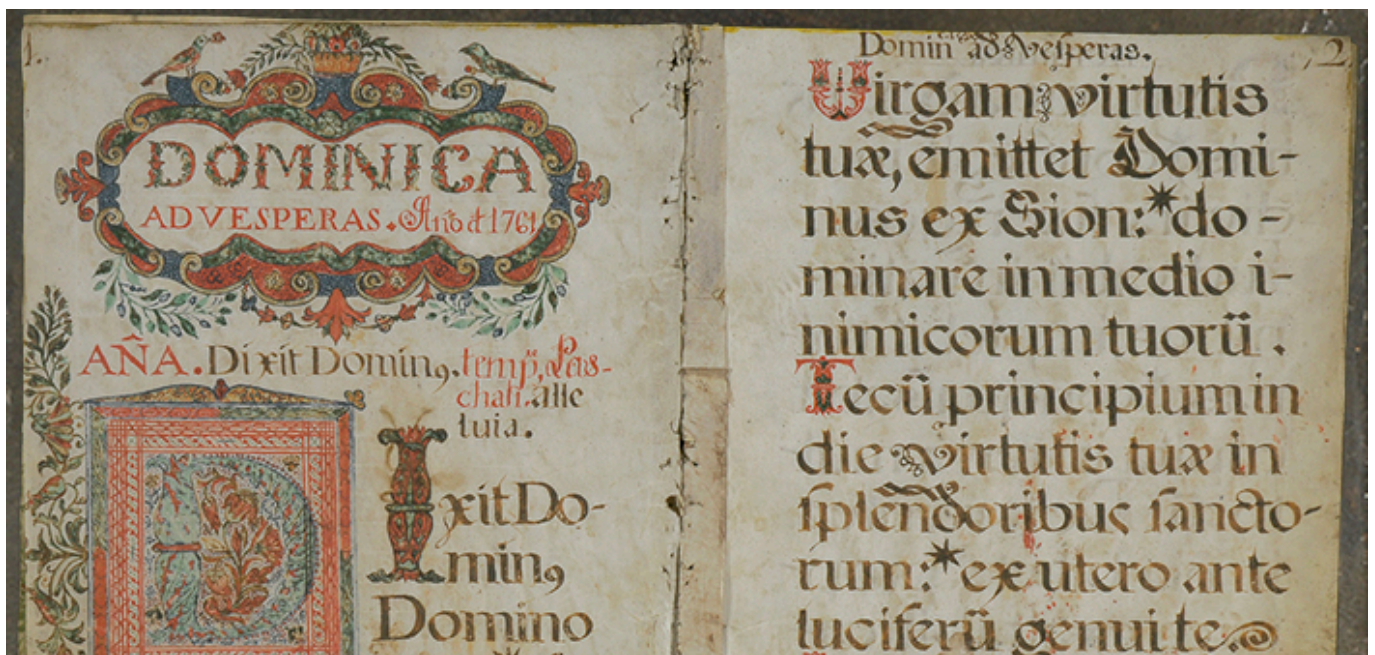 1.
DOMINICA
AD VESPERAS. Año đ 1761
AÑA. Dixit Dominꝰ. temp. Pas-
chali. alle
luia.
Dixit Do-
minꝰ
Domino
2.
Domin ad Vesperas.
Virgam virtutis
tuæ, emittet Domi-
nus ex Sion: *do-
minare in medio i-
nimicorum tuorū.
Tecū principium in
die virtutis tuæ in
ſplendoribus ſancto-
rum: *ex utero ante
luciferū genui te.